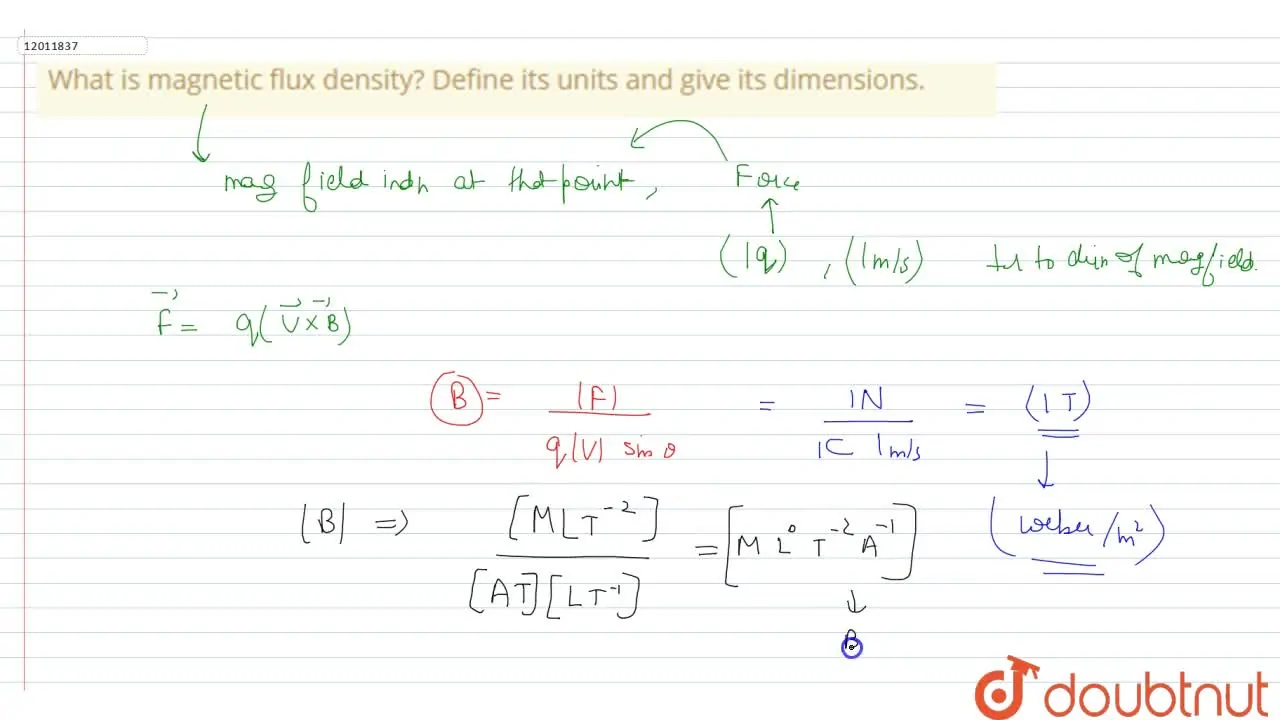 12011837
What is magnetic flux density? Define its units and give its dimensions.
mag field indn at that point, Force
(1q), (1m/s) to dirn of mag field.
F = q(V×B)
B = |F| / q|V| sin θ = 1N / 1C 1m/s = (1T)
|B| ⇒ [MLT⁻²] / [AT][LT⁻¹] = [M L⁰ T⁻² A⁻¹] (weber/m²)
B
doubtnut